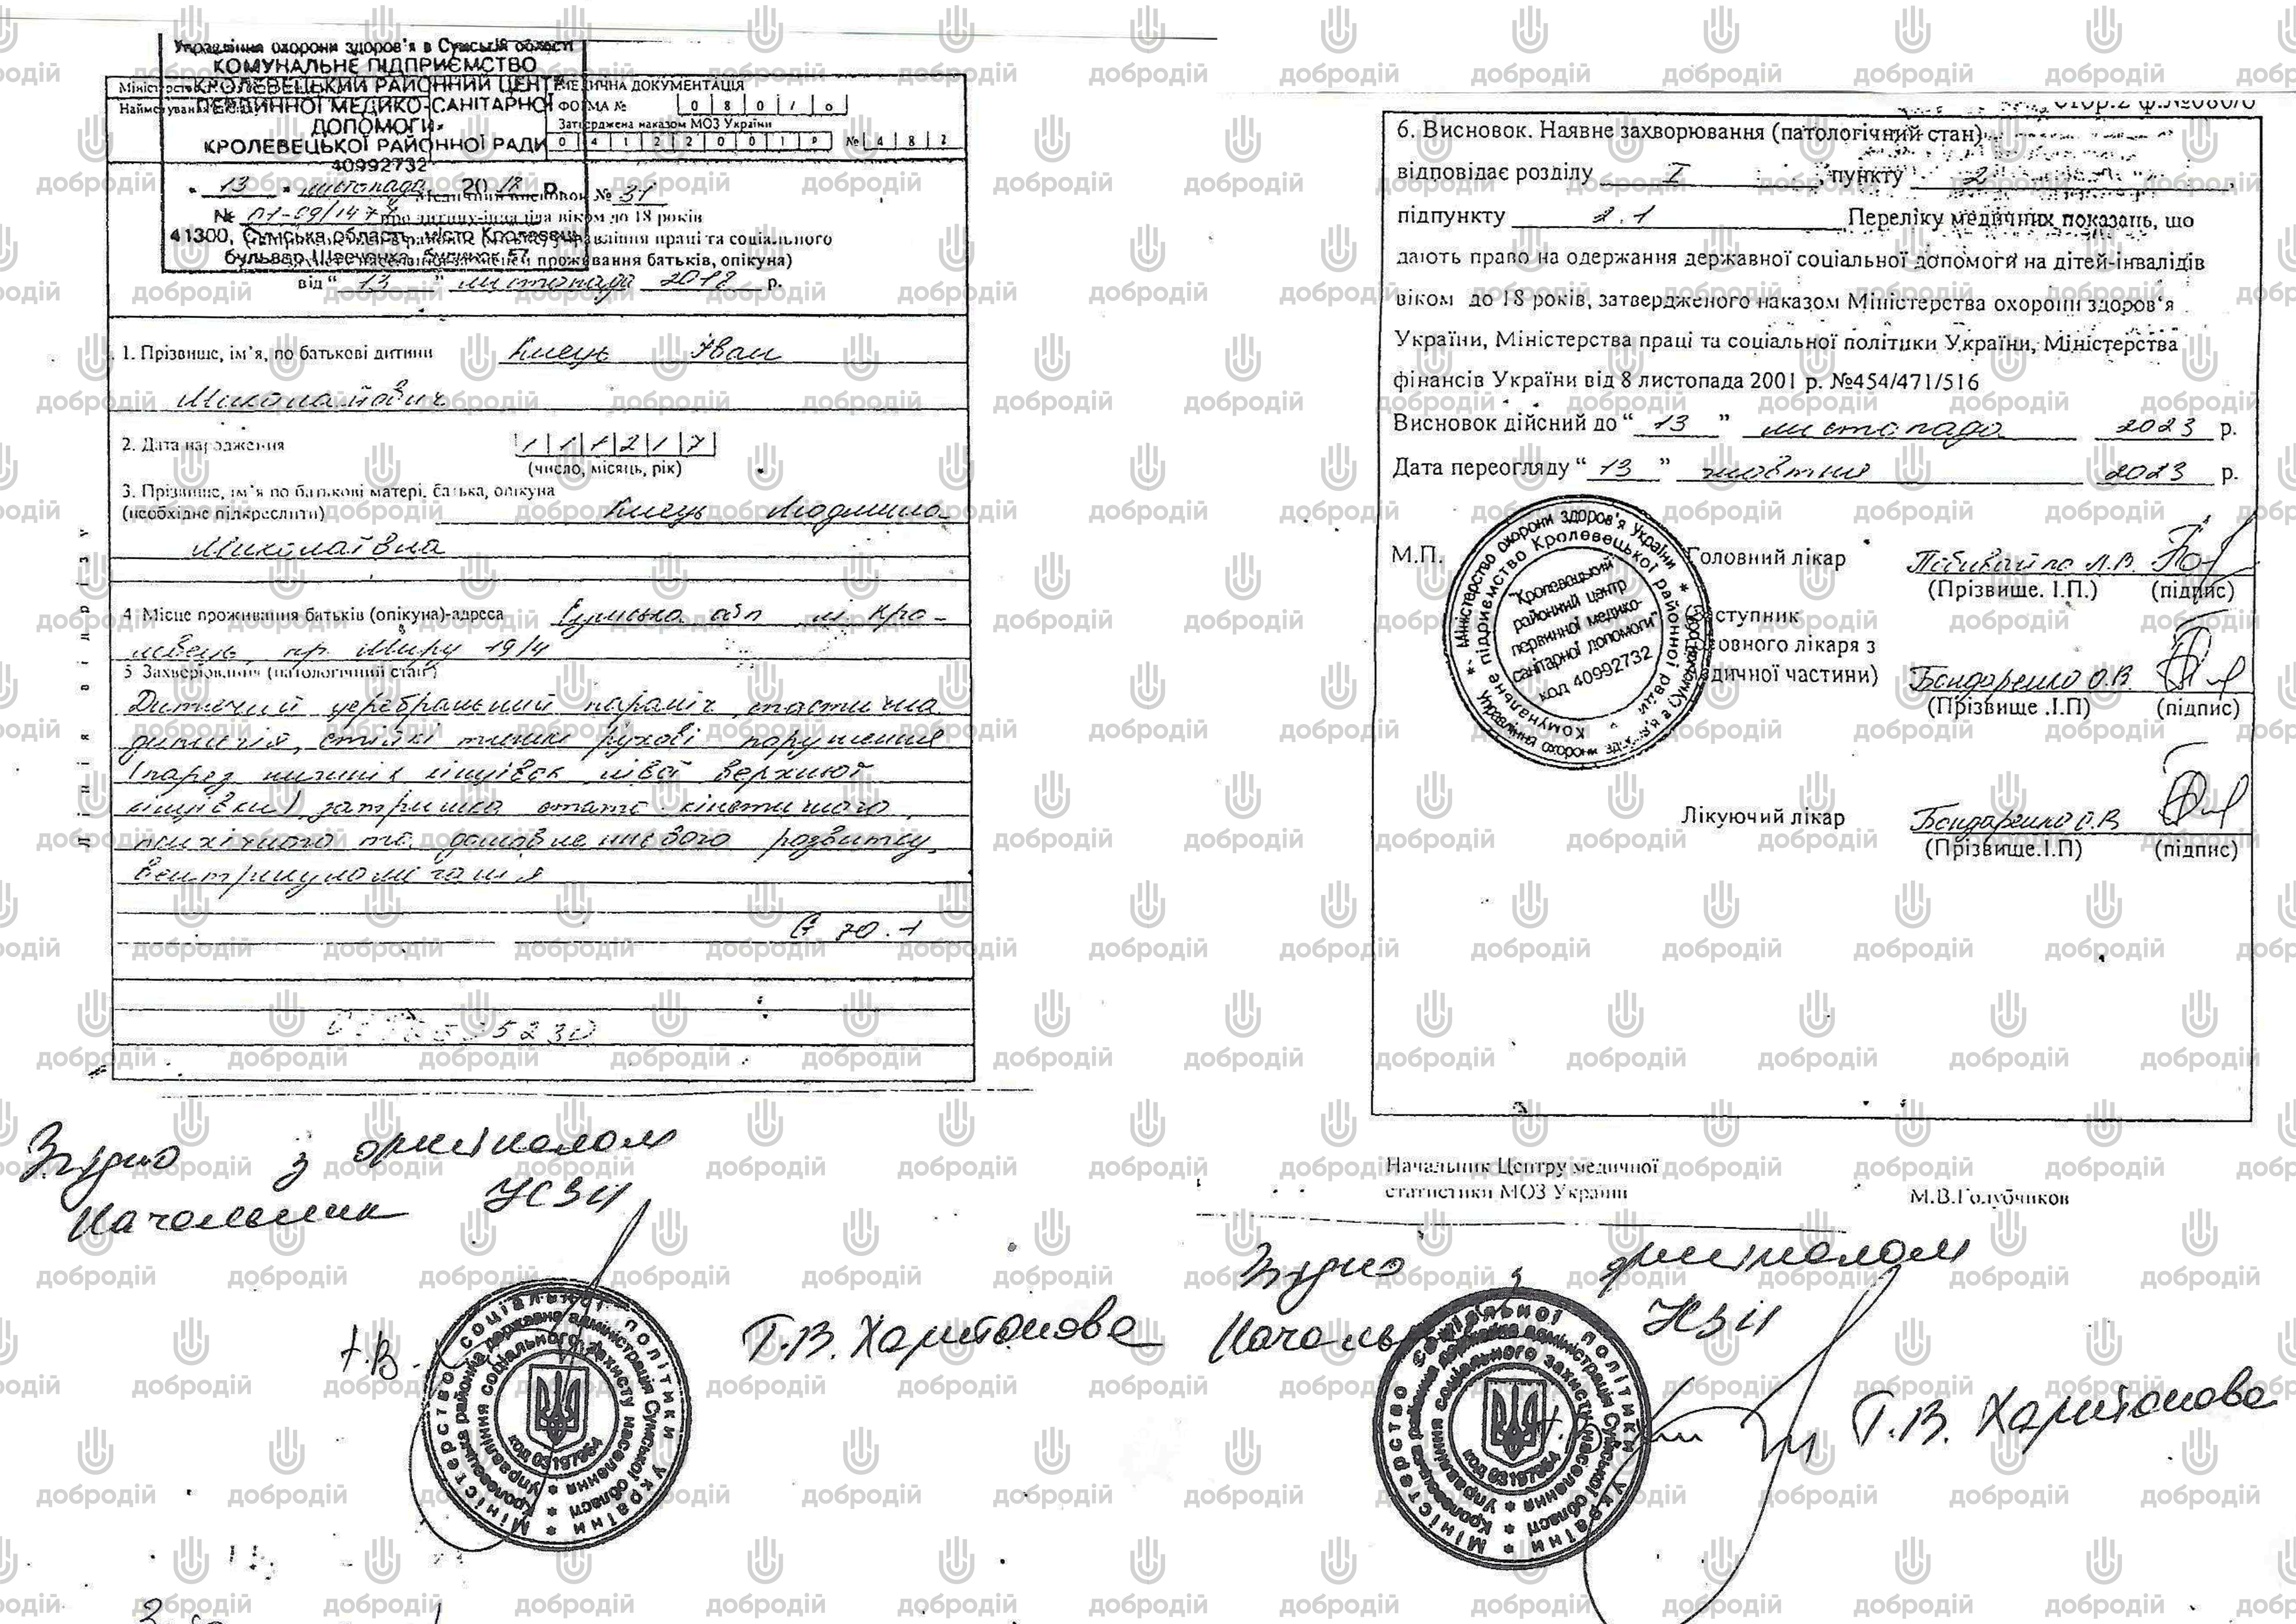 Управління охорони здоров'я в Сумській області
КОМУНАЛЬНЕ ПІДПРИЄМСТВО
КРОЛЕВЕЦЬКИЙ РАЙОННИЙ ЦЕНТР
ПЕРВИННОЇ МЕДИКО-САНІТАРНОЇ
ДОПОМОГИ»
КРОЛЕВЕЦЬКОЇ РАЙОННОЇ РАДИ
40992732
"13" листопада 2018 р.
№ 01-09/147
41300, Сумська область, місто Кролевець
бульвар Шевченка, будинок 57
МЕДИЧНА ДОКУМЕНТАЦІЯ
ФОРМА № 080/о
Затверджена наказом МОЗ України
04122001р №482
Медичний висновок № 31
про дитину-інваліда віком до 18 років
управління праці та соціального
проживання батьків, опікуна)
від "13" листопада 2018 р.
1. Прізвище, ім'я, по батькові дитини Кнець Іван
Миколайович
2. Дата народження 111217
(число, місяць, рік)
3. Прізвище, ім'я по батькові матері, батька, опікуна
(необхідне підкреслити) Кнець Людмила
Миколаївна
4. Місце проживання батьків (опікуна)-адреса Сумська обл м. Кро-
левець, пр. Миру 19/4
5. Захворювання (патологічний стан)
Дитячий церебральний параліч, спастична
диплегія, стійкі тяжкі рухові порушення
(парез нижніх кінцівок лівої верхньої
кінцівки) затримка стато-кінетичного,
психічного та домовленнєвого розвитку,
вентрикуломегалія
G 70.1
Лінія відрізу
Згідно з оригіналом
Начальник УСЗН
Т.В. Харитонова
Міністерство соціальної політики України
Кролевецька районна державна адміністрація Сумської області
Управління соціального захисту населення
код 03197664
стор.2 ф.№080/о
6. Висновок. Наявне захворювання (патологічний стан)
відповідає розділу I, пункту 2,
підпункту 2.1 Переліку медичних показань, що
дають право на одержання державної соціальної допомоги на дітей-інвалідів
віком до 18 років, затвердженого наказом Міністерства охорони здоров'я
України, Міністерства праці та соціальної політики України, Міністерства
фінансів України від 8 листопада 2001 р. №454/471/516
Висновок дійсний до "13" листопада 2023 р.
Дата переогляду "13" жовтня 2023 р.
М.П. Головний лікар
(Прізвище. І.П.) (підпис)
Заступник
головного лікаря з
медичної частини) Бондаренко О.В.
(Прізвище .І.П) (підпис)
Лікуючий лікар Бондаренко О.В
(Прізвище.І.П) (підпис)
Міністерство охорони здоров'я України
Комунальне підприємство Кролевецької районної ради
"Кролевецький
районний центр
первинної медико-
санітарної допомоги"
код 40992732
Начальник Центру медичної
статистики МОЗ України М.В.Голубчиков
Згідно з оригіналом
Начальник УСЗН
Т.В. Харитонова
Міністерство соціальної політики України
Кролевецька районна державна адміністрація Сумської області
Управління соціального захисту населення
код 03197664
добродій